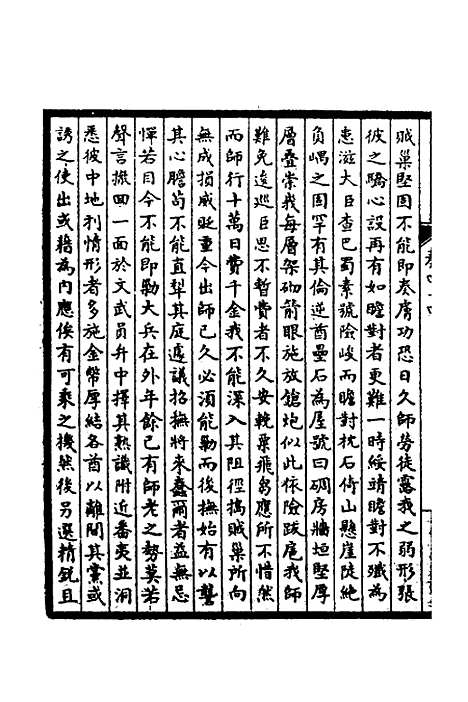 賊巢堅固不能即奏膚功恐日久師勞徒露我之弱形張
彼之驕心設再有如瞻對者更難一時綏靖瞻對不殲為
患滋大臣查巴蜀素號險峻而瞻對枕石倚山懸崖陡絶
負嵎之固罕有其倫逆酋壘石為屋號曰碉房牆垣堅厚
層疊崇我每層架砌箭眼施放鎗炮似此依險跋扈我師
難免逡巡臣思不暫費者不久安輓粟飛芻應所不惜然
而師行十萬日費千金我不能深入其阻徑搗賊巢所向
無成損威貶重今出師已久必須能勦而後撫始有以讋
其心膽茍不能直犁其庭遽議招撫將來蠢爾者益無忌
憚若目今不能即勦大兵在外年餘已有師老之勢莫若
聲言撤回一面於文武員弁中擇其熟識附近番夷並洞
悉彼中地利情形者多施金幣厚結各酋以離間其黨或
誘之使出或藉為内應俟有可乘之機然後另選精鋭且